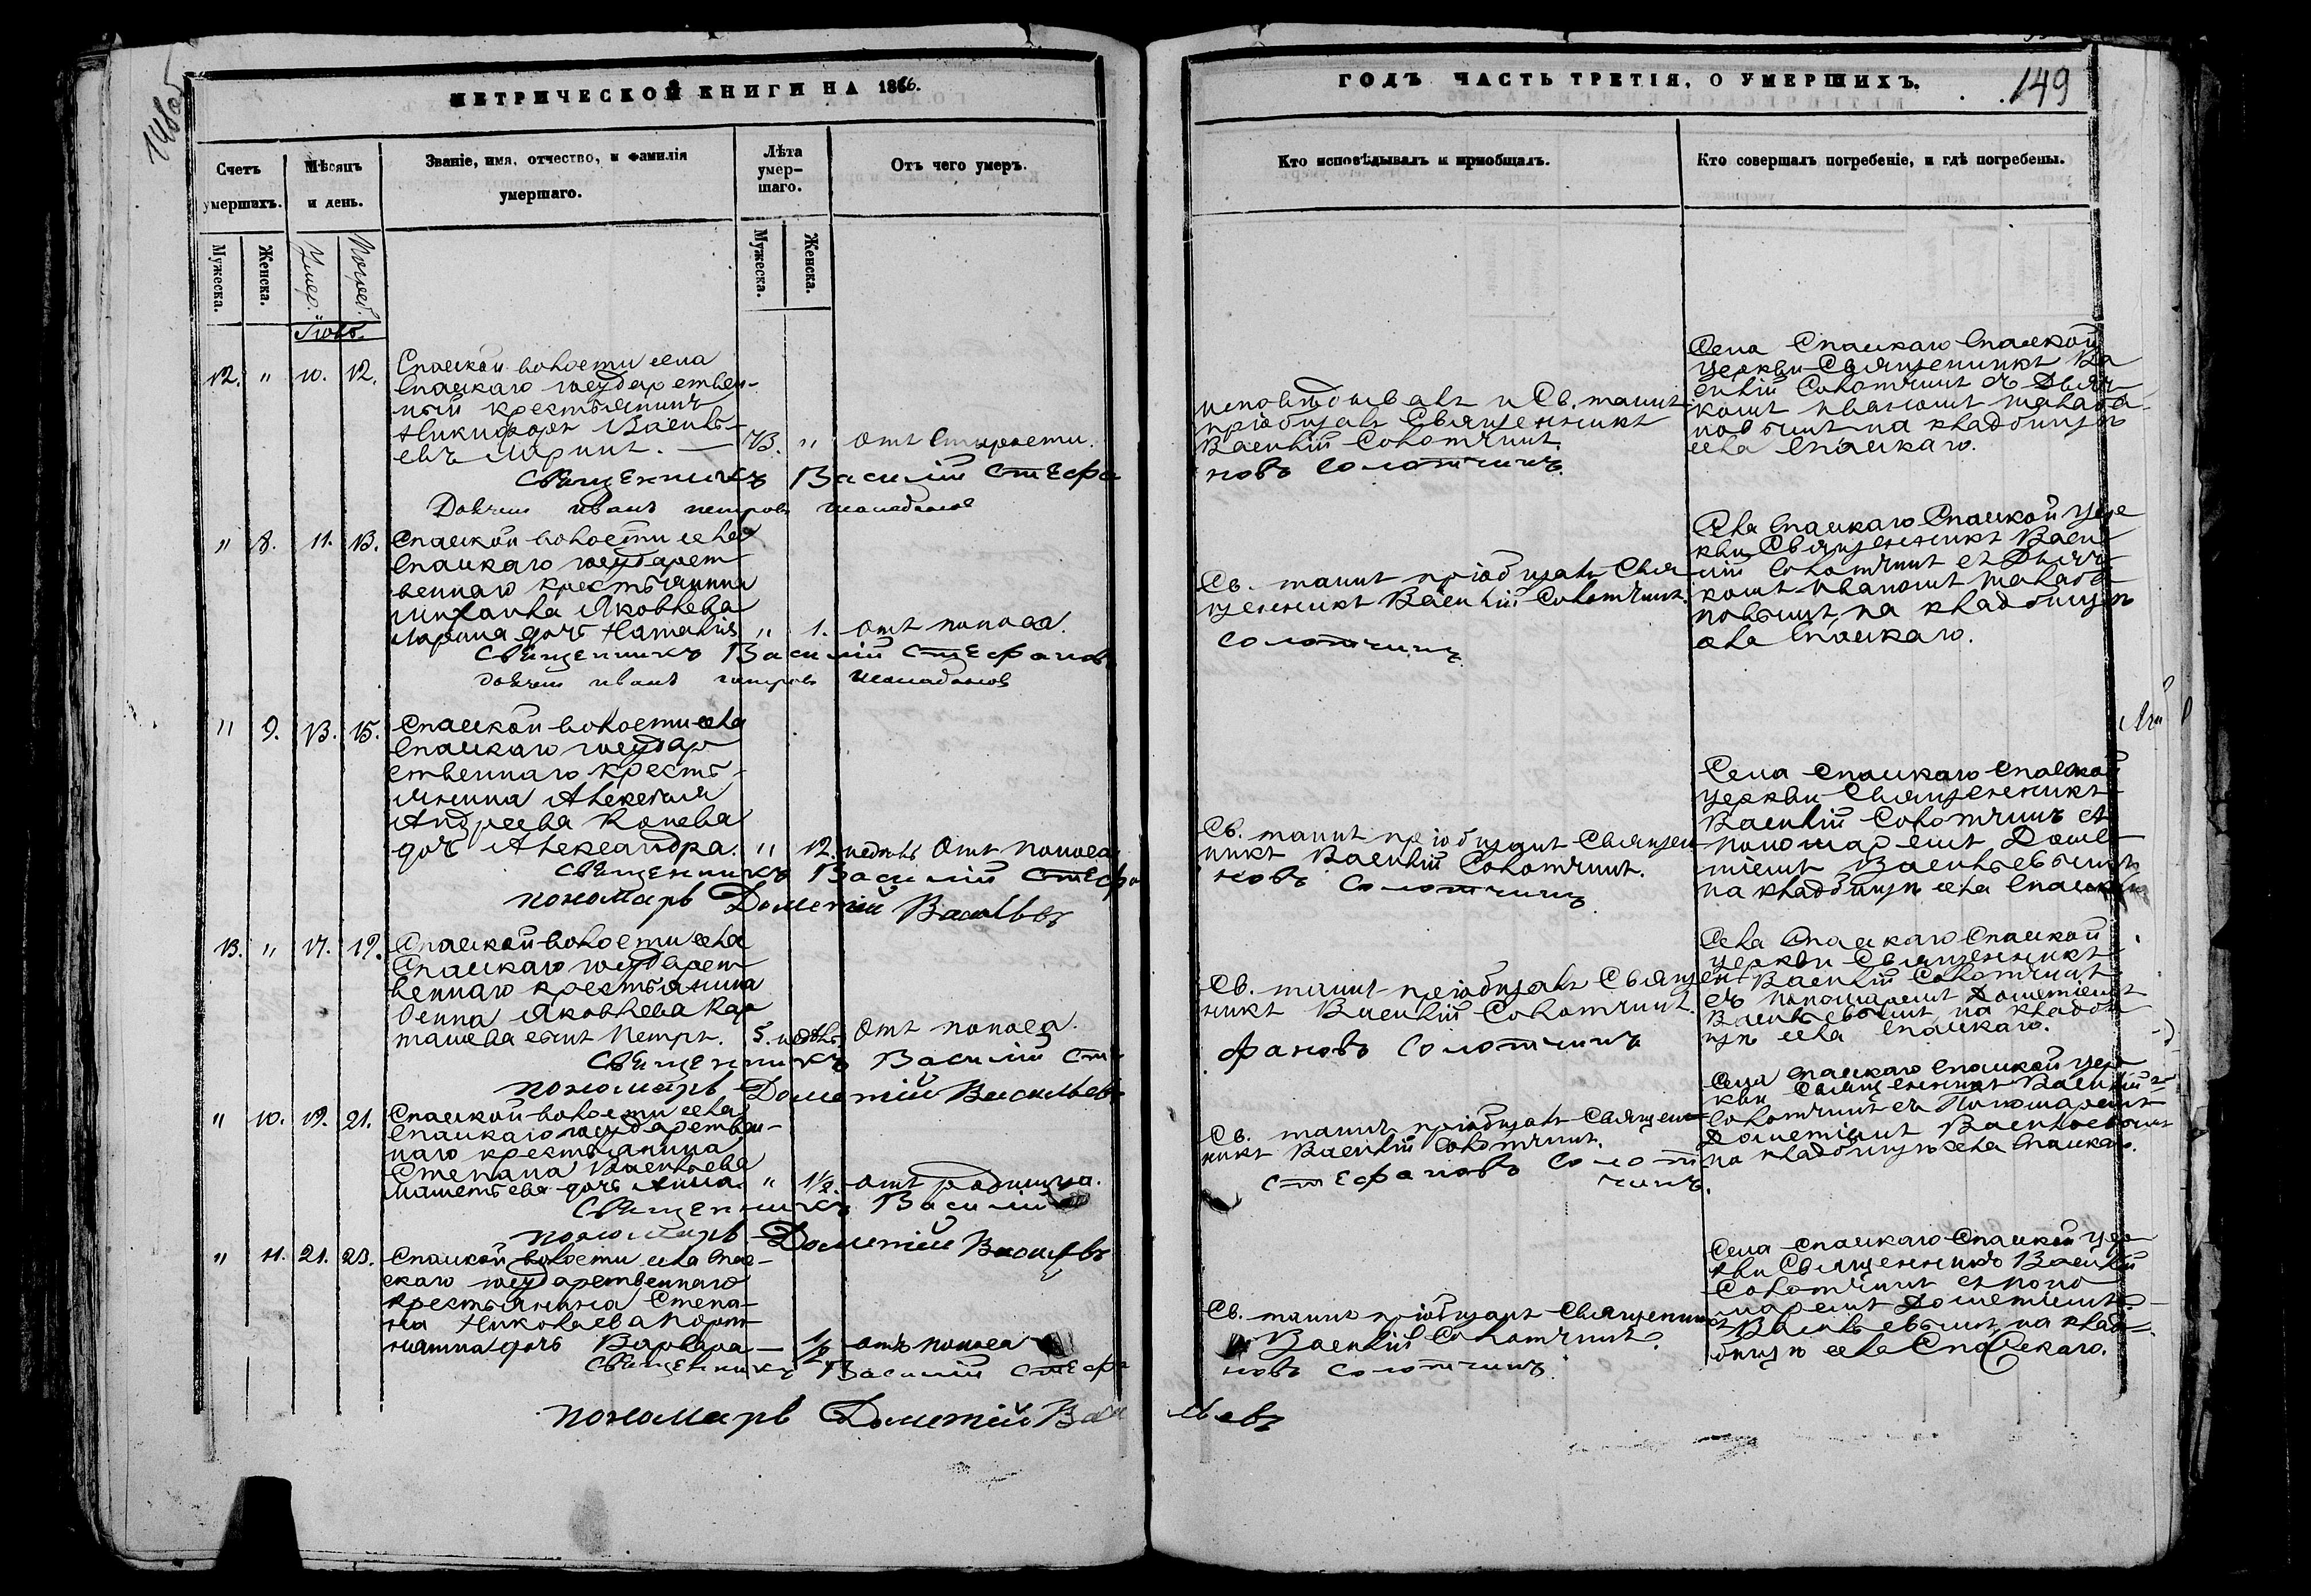 МЕТРИЧЕСКОЙ КНИГИ НА 1866.
Счетъ умершихъ.
Мѣсяцъ и день.
Званіе, имя, отчество, и фамилія
умершаго.
Лѣта
умер-
шаго.
Отъ чего умеръ.
Мужеска.
Женска.
Умер.
Погреб.
Мужеска.
Женска.
12. " 10. 12.
Спаской волости села
Спаскаго государствен-
ный крестьянинъ
Никифоръ Василь-
евъ 73. " отъ старости.
Священникъ Василій Стефа
Дьячекъ Иванъ Петровъ
" 8. 11. 13.
Спаской волости села
Спаскаго государст
веннаго крестьянина
Михаила Яковлева
дочь Наталія " 1. отъ поноса.
Священникъ Василій Стефановъ
Дьячекъ Иванъ Петровъ
" 9. 13. 15.
Спаской волости села
Спаскаго государ
ственнаго кресть-
янина Алексѣя
Андреева Конева
дочь Александра. " 12. недѣль отъ поноса
Священникъ Василій Стефа
пономарь Дометій Васильевъ
13. " 17. 19.
Спаской волости села
Спаскаго государст
веннаго крестьянина
Яковлева Кар
ташева сынъ Петръ. 5. недѣль отъ поноса.
Священникъ Василій Сте
пономарь Дометій Васильевъ
" 10. 19. 21.
Спаской волости села
Спаскаго государствен-
наго крестьянина
Степана Васильева
дочь Анна. " 1½. отъ родимца.
Священникъ Василій
пономарь Дометій Васильевъ
" 11. 21. 23.
Спаской волости села Спас-
скаго государственнаго
крестьянина Степа-
на Николаева
дочь Варвара — ½ отъ поноса
Священникъ Василій Стефа
пономарь Дометій Васи
ГОДЪ ЧАСТЬ ТРЕТІЯ, О УМЕРШИХЪ.
149
Кто исповѣдывалъ и пріобщалъ.
Кто совершалъ погребеніе, и гдѣ погребены.
исповѣдывалъ и Св. таинъ
пріобщалъ Священникъ
Василій Солотчинъ
новъ Солотчинъ.
Села Спаскаго Спаской
церкви Священникъ Ва
силій Солотчинъ съ Дьяч-
комъ Иваномъ
на кладбищѣ
села Спаскаго.
Св. таинъ пріобщалъ Свя-
щенникъ Василій Солотчинъ.
Солотчинъ
Села Спаскаго Спаской цер
кви Священникъ Васи
лій Солотчинъ съ Дьяч-
комъ Иваномъ
на кладбищѣ
села Спаскаго.
Св. таинъ пріобщалъ Священ
никъ Василій Солотчинъ.
новъ Солотчинъ
Села Спаскаго Спаской
церкви Священникъ
Василій Солотчинъ съ
пономаремъ Доме-
тіемъ Васильевымъ
на кладбищѣ села Спаскаго
Св. таинъ пріобщалъ Священ
никъ Василій Солотчинъ.
фановъ Солотчинъ
Села Спаскаго Спаской
церкви Священникъ
Василій Солотчинъ
съ пономаремъ Дометіемъ
Васильевымъ на кладби
щѣ села Спаскаго.
Св. таинъ пріобщалъ Священ
никъ Василій Солотчинъ.
Стефановъ Солот
чинъ.
Села Спаскаго Спаской цер
кви Священникъ Василій
Солотчинъ съ Пономаремъ
Дометіемъ Васильевымъ
на кладбищѣ села Спаскаго.
Св. таинъ пріобщалъ Священникъ
Василій Солотчинъ.
новъ Солотчинъ
Села Спаскаго Спаской цер
кви Священникъ Василій
Солотчинъ съ поно
маремъ Дометіемъ
Васильевымъ на клад-
бищѣ села Спасскаго.
льевъ